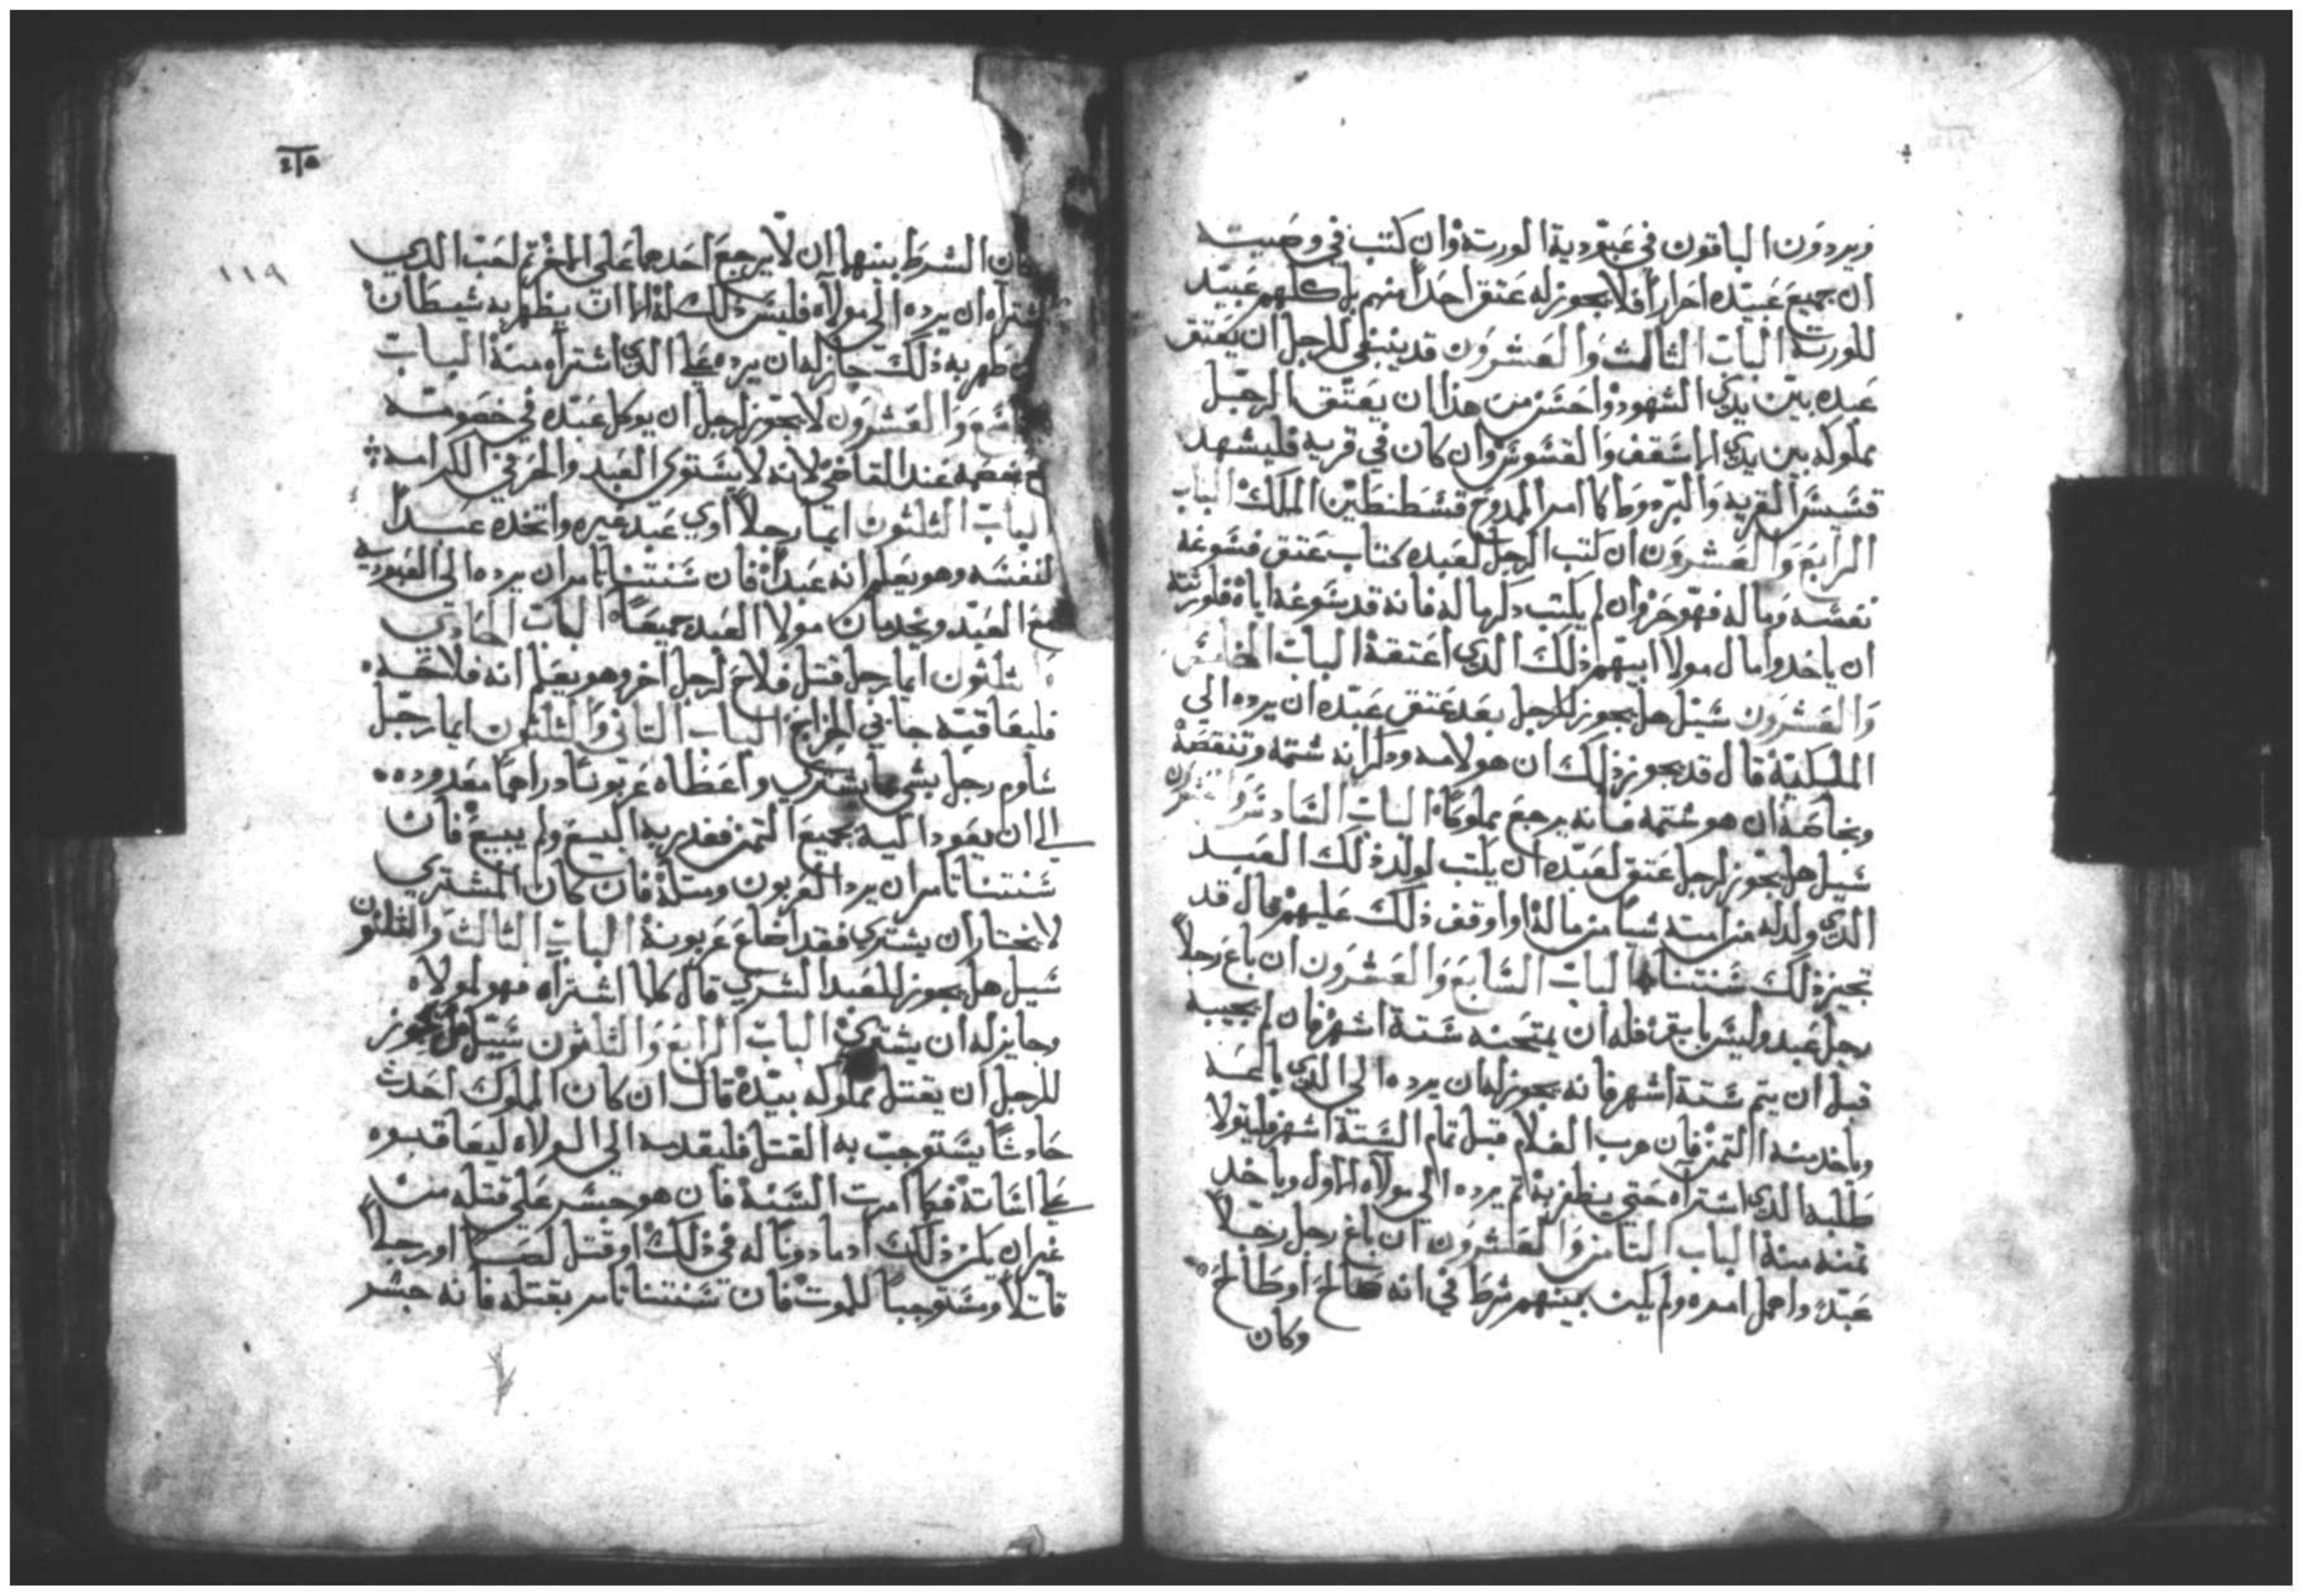 ويردون الباقون في عبودية الورتة وان كتب في وصيته
ان جميع عبيده احراراً فلا يجوز له عتق احداً منهم بل كلهم عبيد
للورتة الباب الثالث والعشرون قد ينبغي للرجل ان يعتق
عبده بين يدي الشهود واحسن من هذا ان يعتق الرجل
مملوكه بين يدي الاسقف والقسوس وان كان في قرية فليشهد
قسيس القرية والبردوط كما امر الممدوح قسطنطين الملك الباب
الرابع والعشرون ان كتب الرجل لعبده كتاب عتق فسوغه
نفسه وماله فهو حر وان لم يكتب دكر ماله فانه قد سوغه اياه فلورثته
ان ياخدوا مال مولا ابيهم ذلك الدي اعتقه الباب الخامس
والعشرون سيل هل يجوز للرجل بعد عتق عبده ان يرده الي
الملكية قال قد يجوز ذلك ان هو لامه ودكر انه شتمه وتنقصه
وبخاصة ان هو شتمه فانه يرجع مملوكاً الباب السادس والعشرون
سيل هل يجوز لرجل عتق لعبده ان يكتب لولد ذلك العبد
الدي ولد له من امته شياً من ماله او اوقف ذلك عليهم قال قد
تجيز ذلك سنتنا الباب السابع والعشرون ان باع رجلاً
رجل عبد وليس ما بقي فله ان يمتحنه ستة اشهر فان لم يجيبه
قبل ان يتم ستة اشهر فانه يجوز له ان يرده الي الدي باعه
وياخد منه التمن فان هرب الغلام قبل تمام الستة اشهر فليقولا
طلبه الدي اشتراه حتي يظفر به تم يرده الي مولاه الاول وياخد
تمنه منه الباب التامن والعشرون ان باع رجل رجلاً
عبده واهمل امره ولم يكن بينهم شرط في انه صالح او طالح
وكان
٢١٥
١١٩
كان الشرط بينهما ان لا يرجع احدهما علي المغرم لحب الدي
اشتراه ان يرده الي مولاه فليس ذلك له الا ان يظهر به شيطان
فان ظهر به ذلك جاز له ان يرده علي الدي اشتراه منه الباب
التاسع والعشرون لا يجوز لرجل ان يوكل عبده في خصومته
مع خصمه عند القاضي لانه لا يستوي العبد والحر في الكرامة
الباب الثلثون ايما رجلاً اوي عبد غيره واتخده عبداً
لنفسه وهو يعلم انه عبد فان سنتنا تامر ان يرده الي العبودية
مع العبد ويخدمان مولا العبد جميعاً الباب الحادي
والثلثون ايما رجل قتل فلاح لرجل اخر وهو يعلم انه فلاحه
فليعاقبه جابي الخراج الباب التاني والثلثون ايما رجل
ساوم رجل بشي ما يشتري واعطاه عربوناً دراهماً معدوده
الي ان يعود اليه بجميع التمن فقد يريد البيع ولم يبيع فان
سنتنا تامر ان يرد العربون ومتله فان كان المشتري
لا يختار ان يشتري فقد اضاع عربونه الباب الثالث والثلثون
سيل هل يجوز للعبد الشري قال كلما اشتراه فهو لمولاه
وجايز له ان يشتري الباب الرابع والثلثون سيل هل يجوز
للرجل ان يقتل مملوكه بيده قال ان كان المملوك احدث
حادثاً يستوجب به القتل فليقدمه الي الولاه ليعاقبوه
علي اساته فكما امرت السنة فان هو جسر علي قتله من
غير ان يكن ذلك ادما دوناً له في ذلك او قتل لصاً او رجلاً
قاتلاً ومستوجباً للموت فان سنتنا تامر بقتله فانه جسر